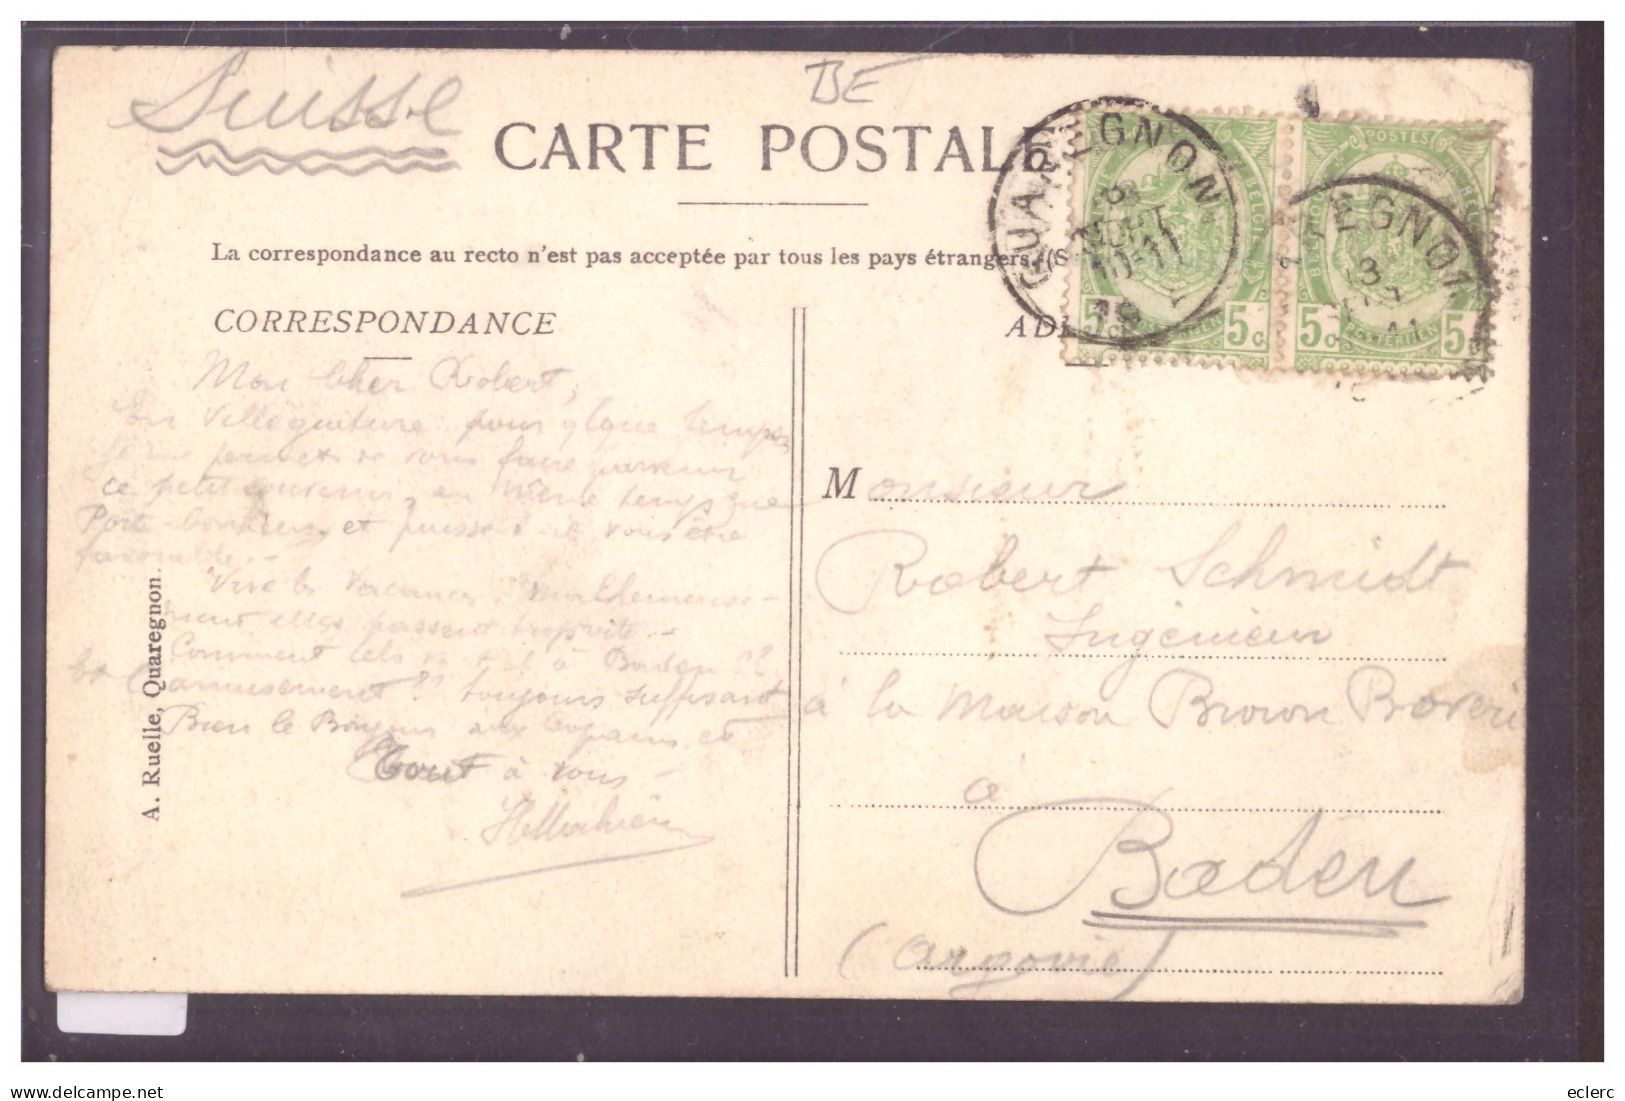 Suisse
BE
CARTE POSTALE
La correspondance au recto n'est pas acceptée par tous les pays étrangers. (S
CORRESPONDANCE
AD
QUAREGNON
8
10-11
19
EGNON
POSTES
5c 5c 5c 5c
Mon Cher Robert,
En Villégiature pour qlque temps
Je me permets de vous faire parvenir
ce petit souvenir, en même temps que
Porte-bonheur, et puisse-t-il vous être
favorable.-
Vive les Vacances; malheureuse-
ment elles passent trop vite.-
Comment cela va-t-il à Baden ??
Et amusement ?? toujours suffisant
Bien le Bonjour aux copains et
Tout à vous -
Monsieur
Robert Schmidt
Ingénieur
à la maison Brown Boveri
à
Baden
(Argovie)
A. Ruelle, Quaregnon.
delcampe.net
eclerc